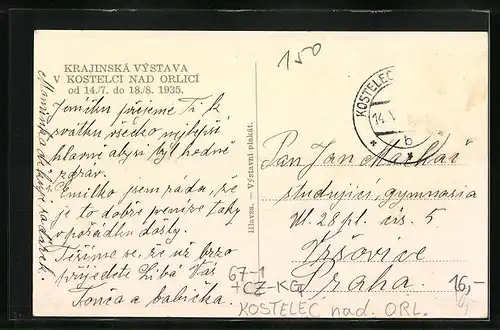 150
KRAJINSKÁ VÝSTAVA
V KOSTELCI NAD ORLICÍ
od 14./7. do 18./8. 1935.
Jeníku přijeme Ti k
svátku všecko nejlepší
hlavně abysi byl hodně
zdráv.
Emilko jsem ráda, že
je to dobře peníze taky
v pořádku došly.
Těšíme se, že už brzo
přijedete Líbá Vás
Tonča a babička.
Maminka děkuje za dárek
Hlavsa. — Výstavní plakát.
KOSTELEC
14.
b
Pan Jan
studující, gymnasia
Ul. 28 pl. čis. 5
Vršovice
Praha.
16,-
67-1
+CZ-KG
KOSTELEC nad. ORL.